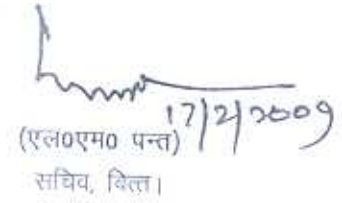 17/2/2009
(एल0एम0 पन्त)
सचिव, वित्त।